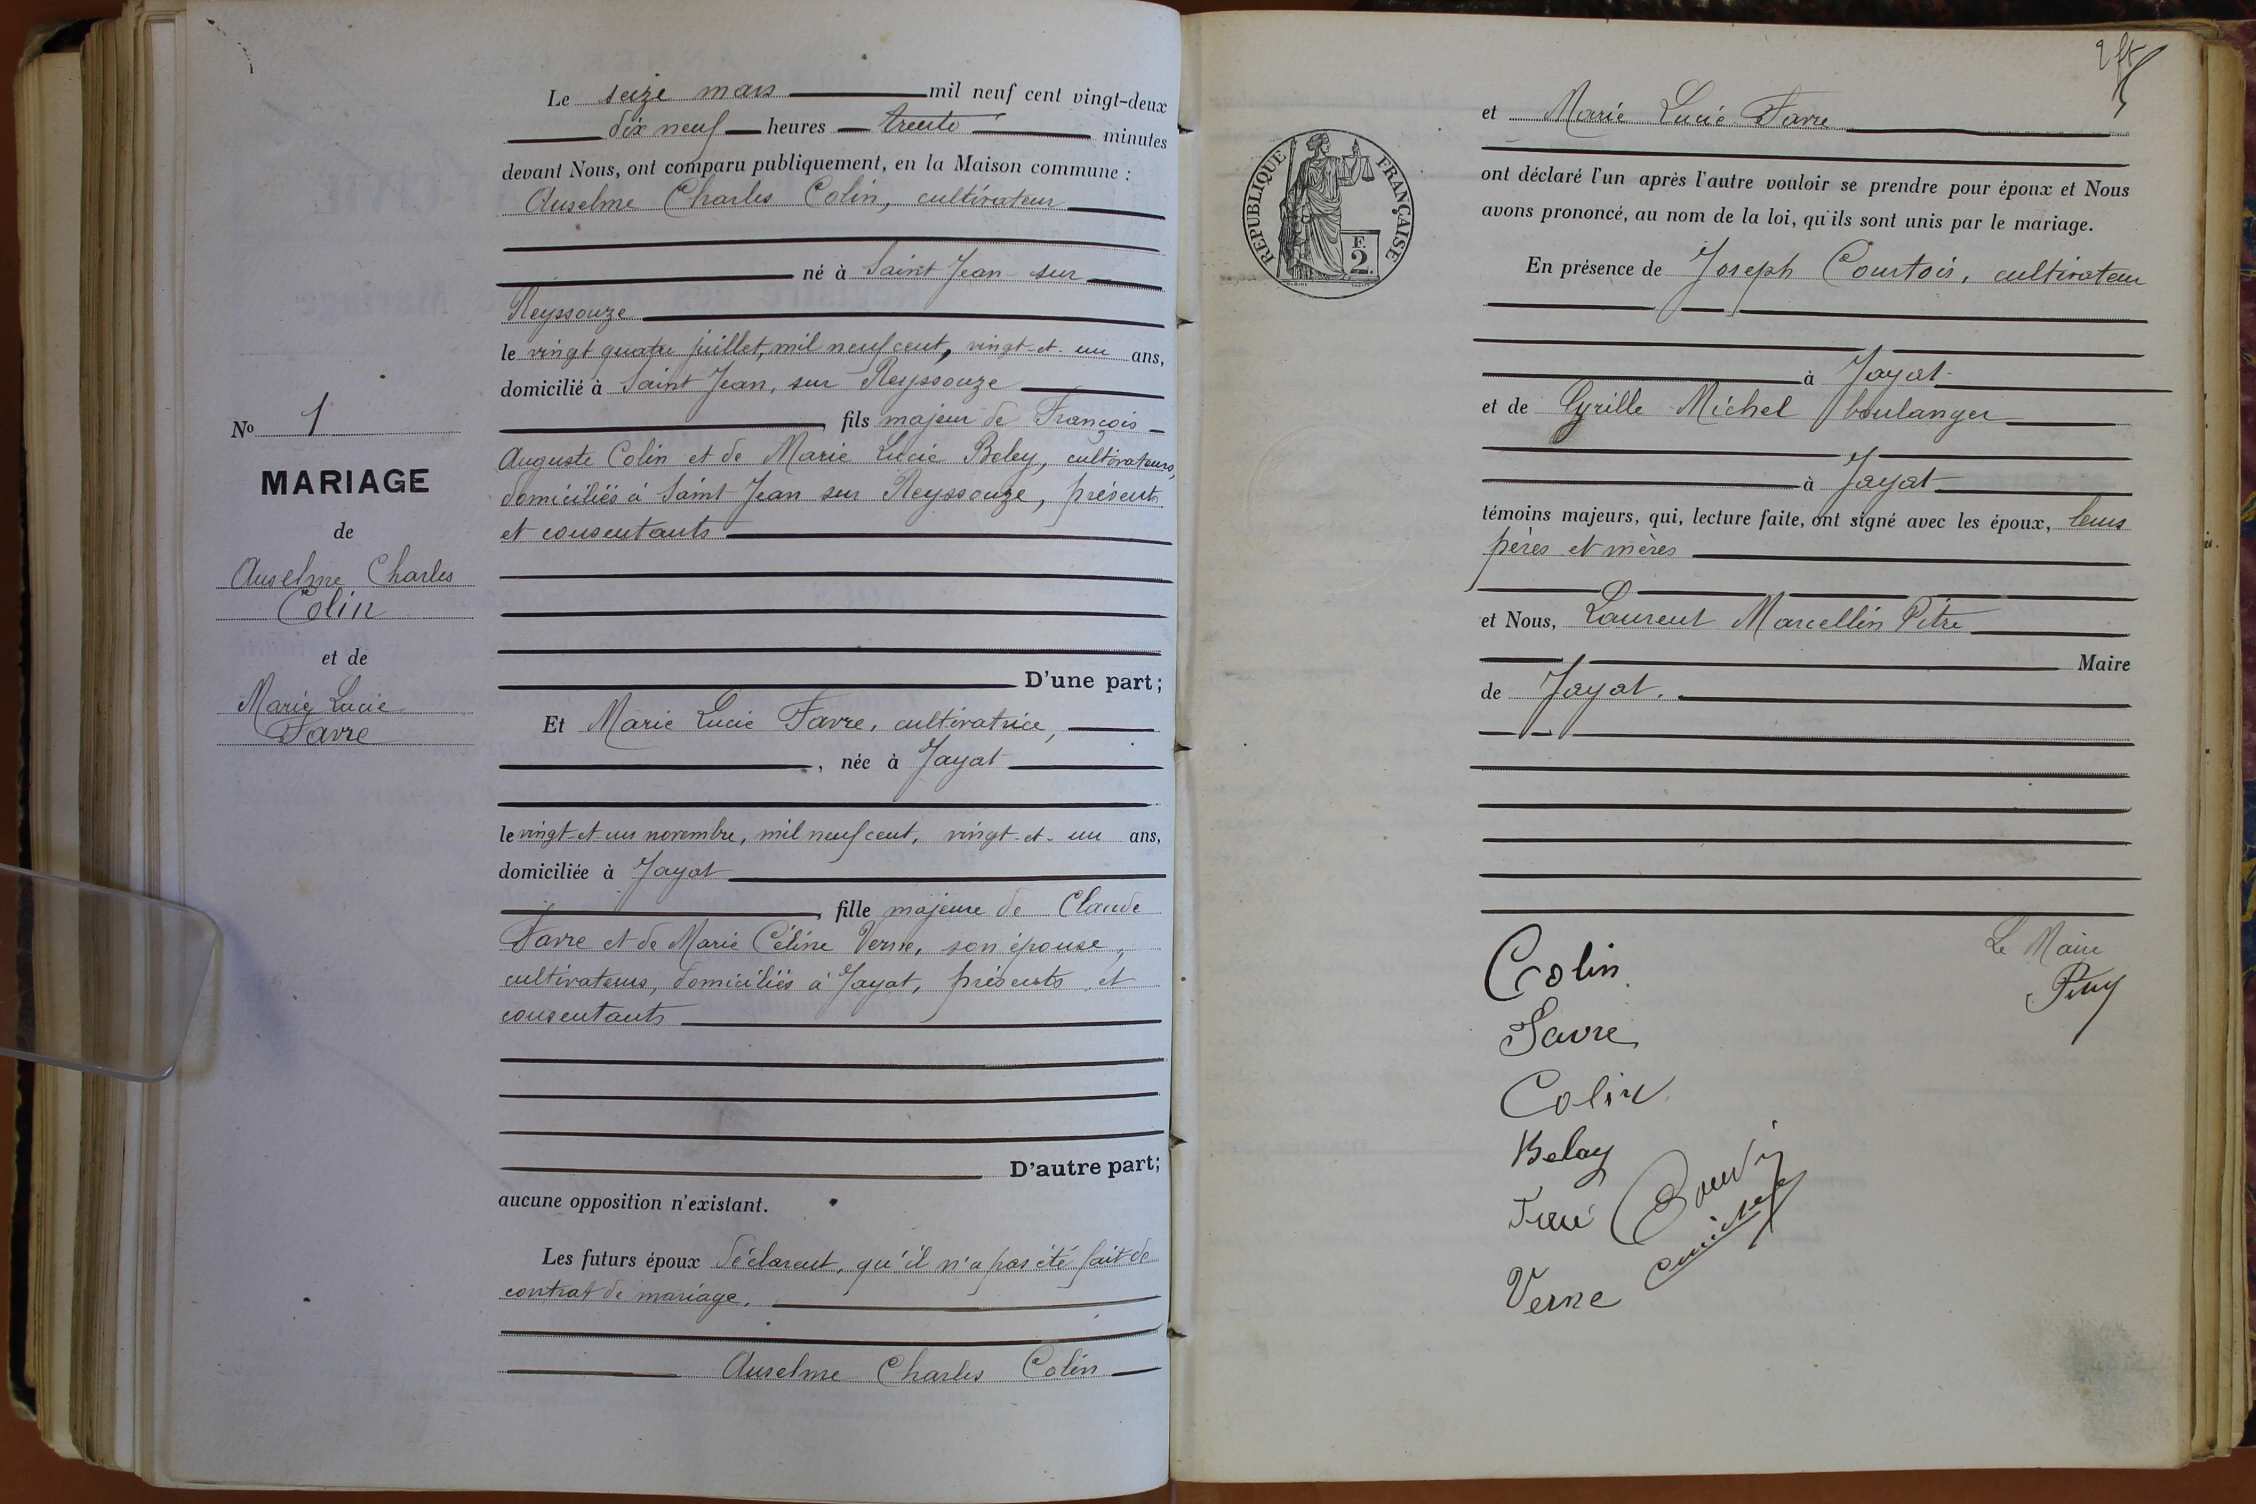 Le seize mars mil neuf cent vingt-deux
dix neuf heures trente minutes
devant Nous, ont comparu publiquement, en la Maison commune :
Anselme Charles Colin, cultivateur
né à Saint Jean sur
Reyssouze
le vingt quatre juillet, mil neuf cent, vingt-et-un ans,
domicilié à Saint Jean, sur Reyssouze
, fils majeur de François
Auguste Colin et de Marie Lucie Beley, cultivateurs,
domiciliés à Saint Jean sur Reyssouze, présents
et consentants
D'une part;
Et Marie Lucie Favre, cultivatrice,
, née à Jayat
le vingt-et-un novembre, mil neuf cent, vingt-et-un ans,
domiciliée à Jayat
, fille majeure de Claude
Favre et de Marie Céline Verne, son épouse,
cultivateurs, domiciliés à Jayat, présents et
consentants
D'autre part;
aucune opposition n'existant.
Les futurs époux déclarent, qu'il n'a pas été fait de
contrat de mariage.
Anselme Charles Colin
No 1
MARIAGE
de
Anselme Charles
Colin
et de
Marie Lucie
Favre
RÉPUBLIQUE FRANÇAISE
F.
2.
et Marie Lucie Favre
ont déclaré l'un après l'autre vouloir se prendre pour époux et Nous
avons prononcé, au nom de la loi, qu'ils sont unis par le mariage.
En présence de Joseph Courtois, cultivateur
à Jayat
et de Cyrille Michel boulanger
à Jayat
témoins majeurs, qui, lecture faite, ont signé avec les époux, leurs
pères et mères
et Nous, Laurent Marcellin Pitre
Maire
de Jayat.
Colin
Favre
Colin
Belay
Verne
Le Maire